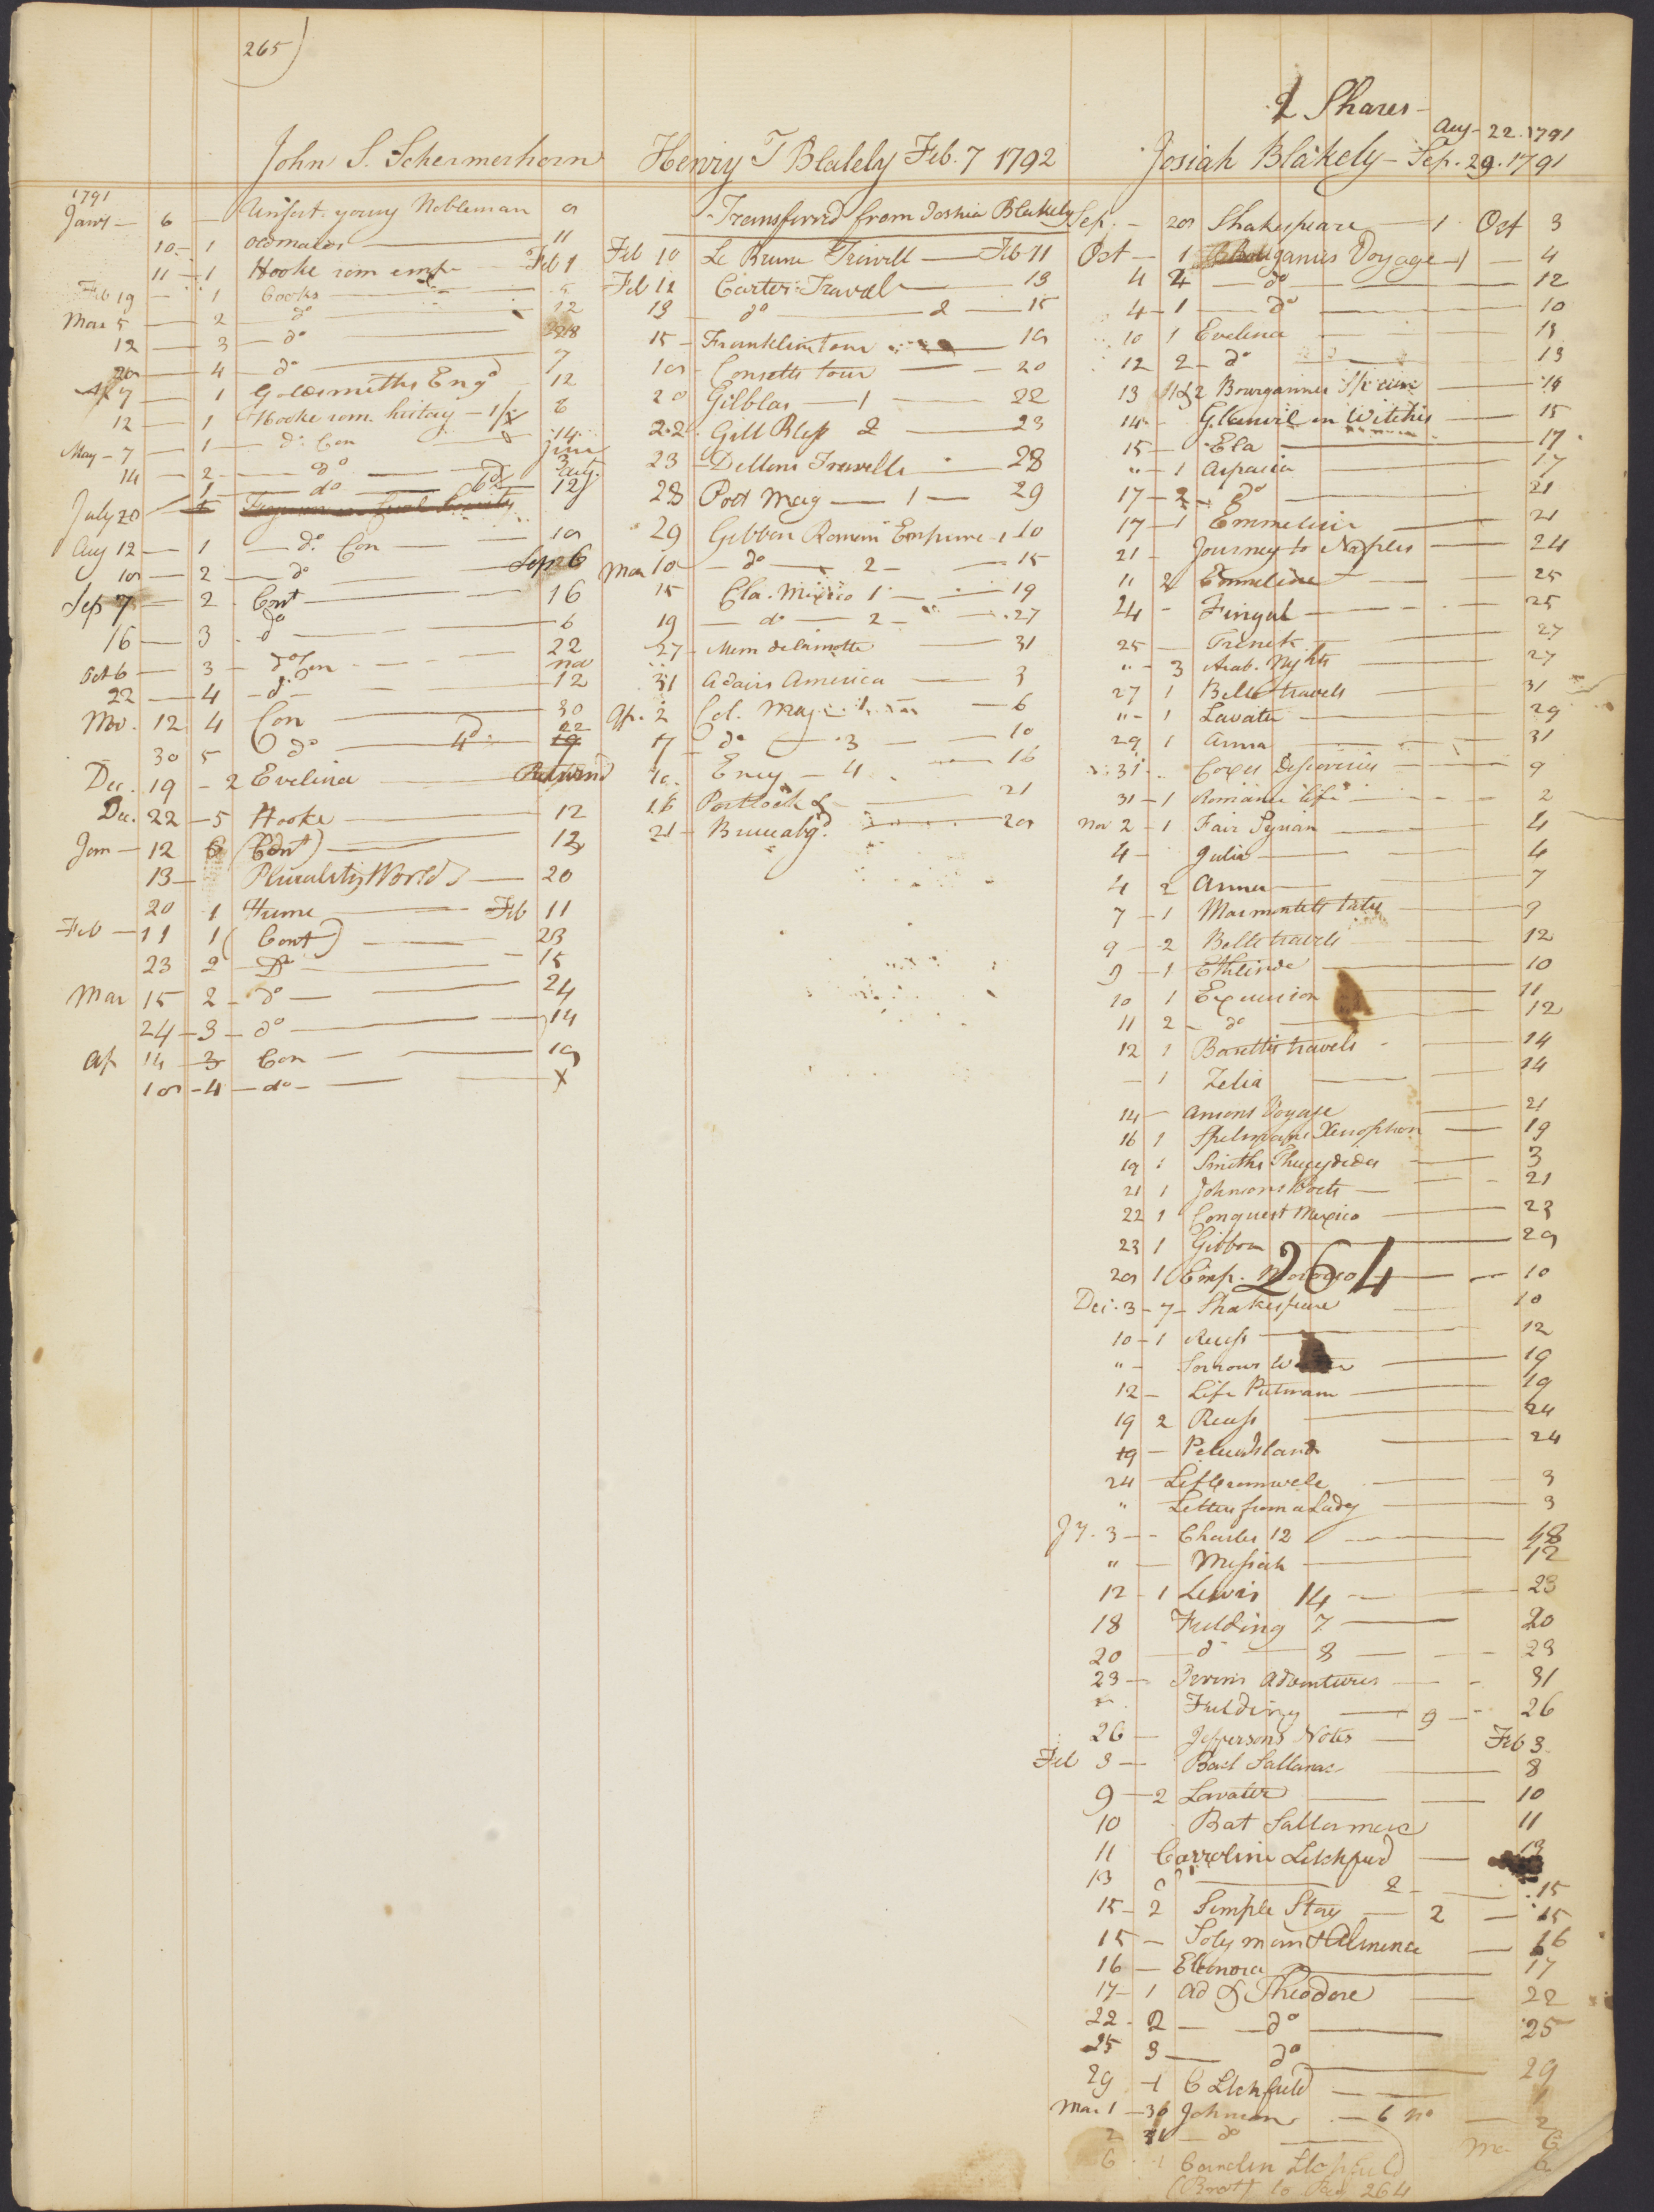 265
John S. Schermerhorn
1791
Jany — 6 — Unfort. young Nobleman
10 — 1 Old maids — 11
11 — 1 Hooke rom emp — Feb 1
Feb 19 — 1 Cooks
Mar 5 — 2 — do — 12
12 — 3 — do — 28
4 — do — 7
Ap 7 — 1 Goldsmiths Engd 12
12 — 1 Hooke rom. history — 8
May — 7 — 1 — do Con — 14
14 — 2 — do
July 20 1 do 12
Aug 12 — 1 — do Con — 19
19 — 2 — do — Sept 6
Sep 7 — 2 Cont — 16
16 — 3 — do — 6
Oct 6 — 3 — do Con — 22
22 — 4 — do — Nov 12
Nov. 12 4 Con — 30
30 5 do — 22
Dec. 19 — 2 Evelina — Returnd
Dec. 22 — 5 Hooke — 12
Jan — 12 6 (Cont) — 13
13 — Plurality Worlds — 20
20 1 Hume — Feb 11
Feb — 11 1 (Cont) — 23
23 2 — Do — 15
Mar 15 2 — do — 24
24 — 3 — do — 14
Ap 14 3 Con — 19
19 — 4 — do — X
Henry T Blakely Feb. 7 1792
Transferrd from Joshia Blakely
Feb 10 Le Brune Travell — Feb 11
Feb 11 Carters Travel — 13
13 do — 2 — 15
15 — Franklins tour — 19
19 — Consetts tour — 20
20 Gilblas — 1 — 22
22 Gill Blass 2 — 23
23 — Dellons Travells — 28
28 Post Mag — 1 — 29
29 Gibbon Roman Empire — 1 10
Mar 10 — do — 2 — 15
15 Cla. Mexico 1 — 19
19 — do — 2 — 27
27 — Mem de lamotte — 31
31 Adairs America — 3
Ap. 2 Col. Mag — 6
7 — do — 3 — 10
10 Ency — 4 — 16
16 Portlock — 21
21 — Bruce abgd — 29
2 Shares —
Aug — 22. 1791
Josiah Blakely — Sep. 29. 1791
Sep. — 29 Shakespeare — 1 Oct 3
Oct — 1 Voyage 1 — 4
4 2 — do — 12
4 — 1 — do — 10
10 1 Evelina — 13
12 2 — do — 13
13 1 & 2 — 14
14 — Glanvil on Witches — 15
15 — Ela — 17
" — 1 Aspasia — 17
17 — 2 — do — 21
17 — 1 Emmeline — 21
21 — Journey to Naples — 24
" 2 Emmeline — 25
24 — Fingal — 25
25 — Trenck — 27
" — 3 Arab. Nights — 27
27 1 Bells travels — 31
" — 1 Lavater — 29
29 1 Anna — 31
31 Coxes Discoveries — 9
31 — 1 Romance life — 2
Nov 2 — 1 Fair Syrian — 4
4 — Julia — 4
4 2 Anna — 7
7 — 1 Marmontels tales — 9
9 — 2 Bells travels — 12
9 — 1 Ethlinde — 10
10 1 Excursion — 11
11 2 — do — 12
12 1 Barettis travels — 14
— 1 Zelia — 14
14 — Ansons Voyage — 21
16 1 Spelmans Xenophon — 19
19 1 Smiths Thucydides — 3
21 1 Johnsons Poets — 21
22 1 Conquest Mexico — 23
23 1 Gibbon — 29
264
29 1 Emp. Morocco — 10
Dec. 3 — 7 — Shakespeare — 10
10 — 1 Recess — 12
" — Sorrows — 19
12 — Life Putnam — 19
19 2 Recess — 24
19 — Pelew Island — 24
24 — Life Cromwele — 3
" Letters from a Lady — 3
Jy. 3 — Charles 12 — 18
" — Messiah — 12
12 — 1 Lewis 14 — 23
18 Fielding 7 — 20
20 — do — 8 — 23
23 — Adventures — 31
" Fielding — 9 — 26
26 — Jeffersons Notes — Feb 3
Feb 3 — — 8
9 — 2 Lavater — 10
10 Bat — 11
11 Carroline Litchfied — 13
13 do — 2 — 15
15 — 2 Simple Story — 2 — 15
15 — Solyman & Almena — 16
16 — Elenora — 17
17 — 1 Ad & Theodore — 22
22 — 2 — do — 25
25 3 — do — 29
29 — 1 C Litchfield — 1
Mar 1 — 36 Johnson — 6 no — 2
2 31 — do — 6
6 1 Carolin Litchfield
(Brot) to Page 264